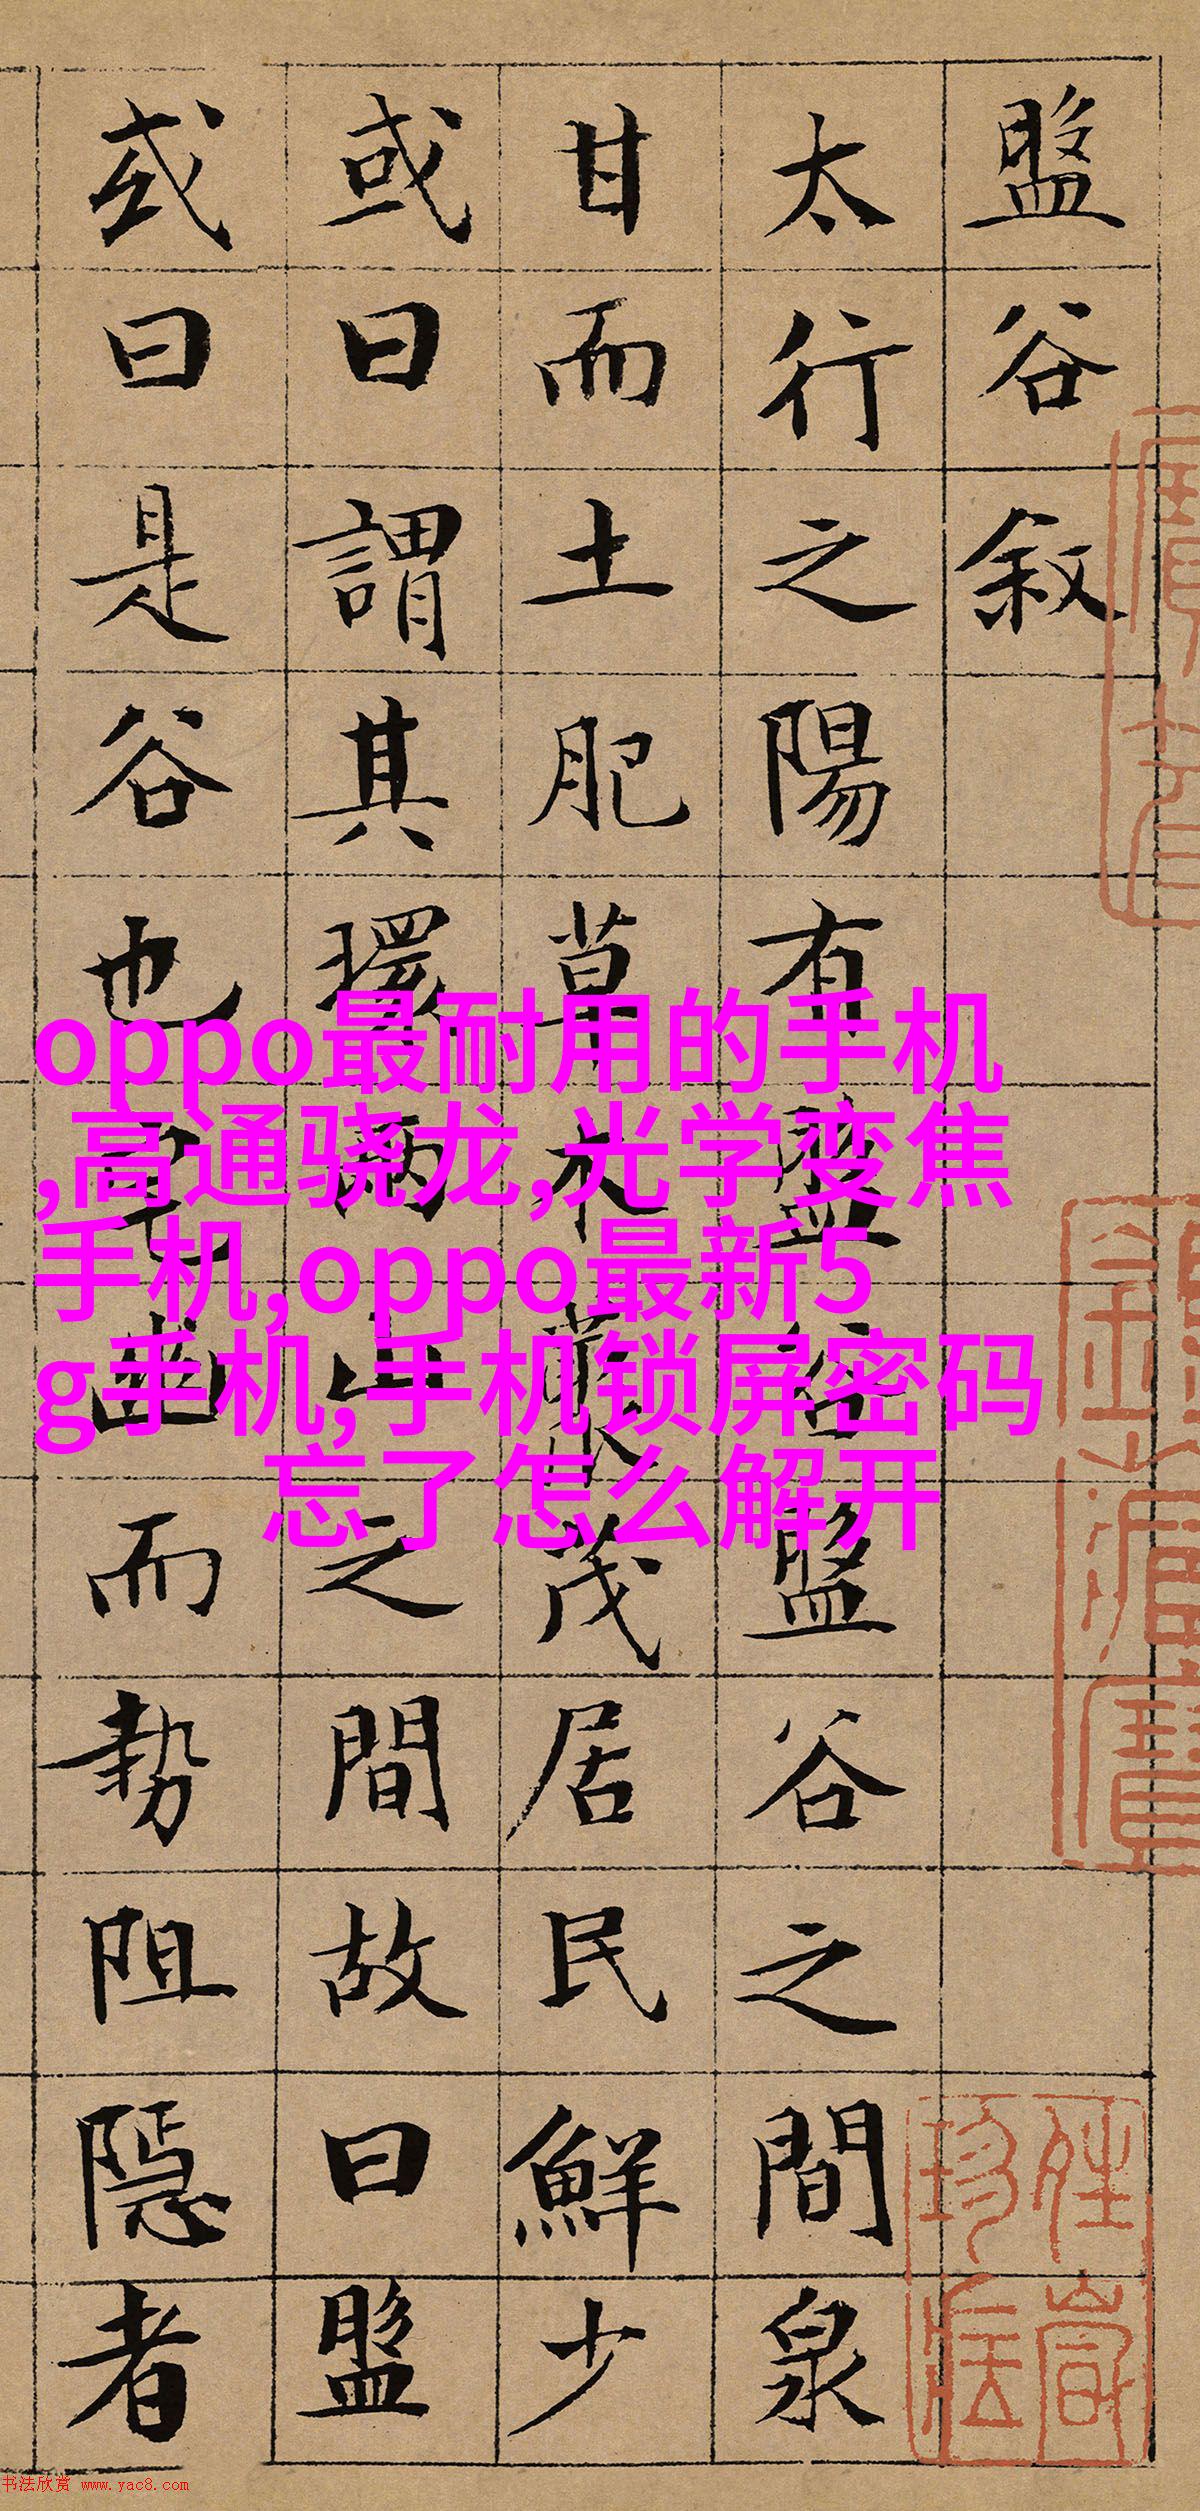 盤谷敘
太行之陽有盤谷盤谷之間泉
甘而土肥草木叢茂居民鮮少
或曰謂其環兩山之間故曰盤
或曰是谷也宅幽而勢阻隱者
oppo最耐用的手机
,高通骁龙,光学变焦
手机,oppo最新5
g手机,手机锁屏密码
忘了怎么解开
书法欣赏 www.yac8.com